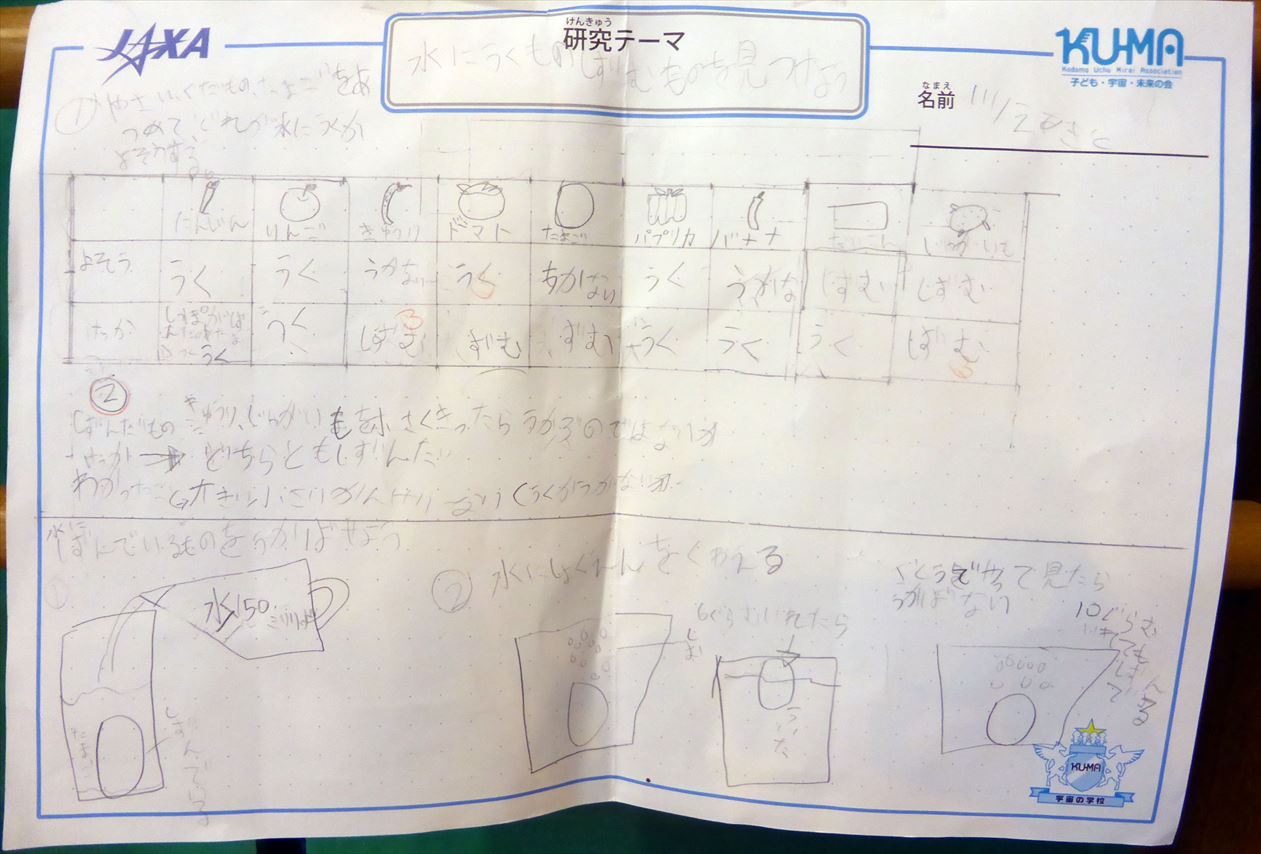 JAXA
けんきゅう
研究テーマ
水にうくものしずむものを見つけよう
KU-MA
Kodomo Uchu Mirai Association
子ども・宇宙・未来の会
なまえ
名前
① やさい、くだもの、たまごをあ
つめて、どれが水にうくか
よそうする
にんじん りんご きゅうり トマト たまご パプリカ バナナ だいこん じゃがいも
よそう うく うく うかない うく うかない うく うかな しずむ しずむ
けっか うく うく しずむ しずむ しずむ うく うく うく しずむ
②
しずんだもの きゅうり、じゃがいもを小さくきったらうかぶのではないか
けっか→どちらともしずんだ
わかったこと 大きい小さいかんけいなく うくかうかないか
水に しずんでいるものをうかばせよう
①
水150ミリリットル
たまご
しずんでいる
② 水に をくわえる
しお
6ぐらむいれたら
ういた
さとうでやって見たら
うかばない
10ぐらむ
いれても
しずんでる
KU-MA
宇宙の学校